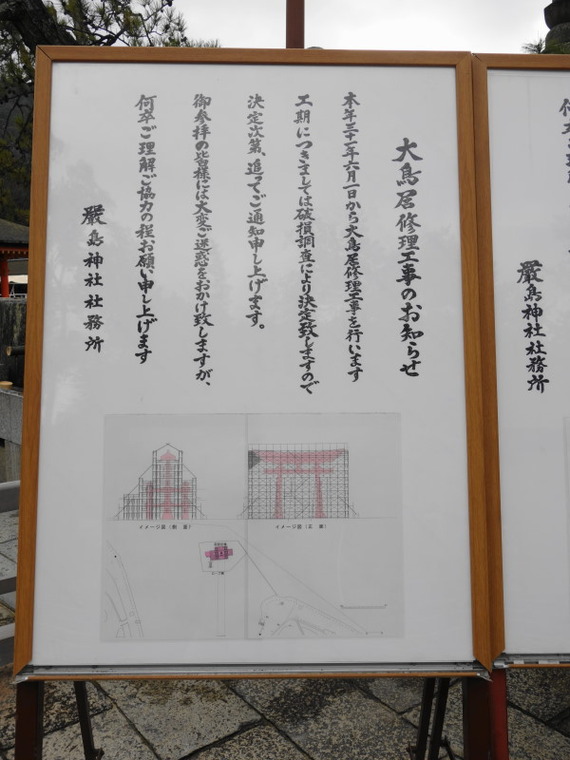 大鳥居修理工事のお知らせ
本年三十一年六月一日から大鳥居修理工事を行います
工期につきましては破損調査により決定致しますので
決定次第、追ってご通知申し上げます。
御参拝の皆様には大変ご迷惑をおかけ致しますが、
何卒ご理解ご協力の程お願い申し上げます
嚴島神社社務所
イメージ図（側面）
イメージ図（正面）
嚴島神社社務所